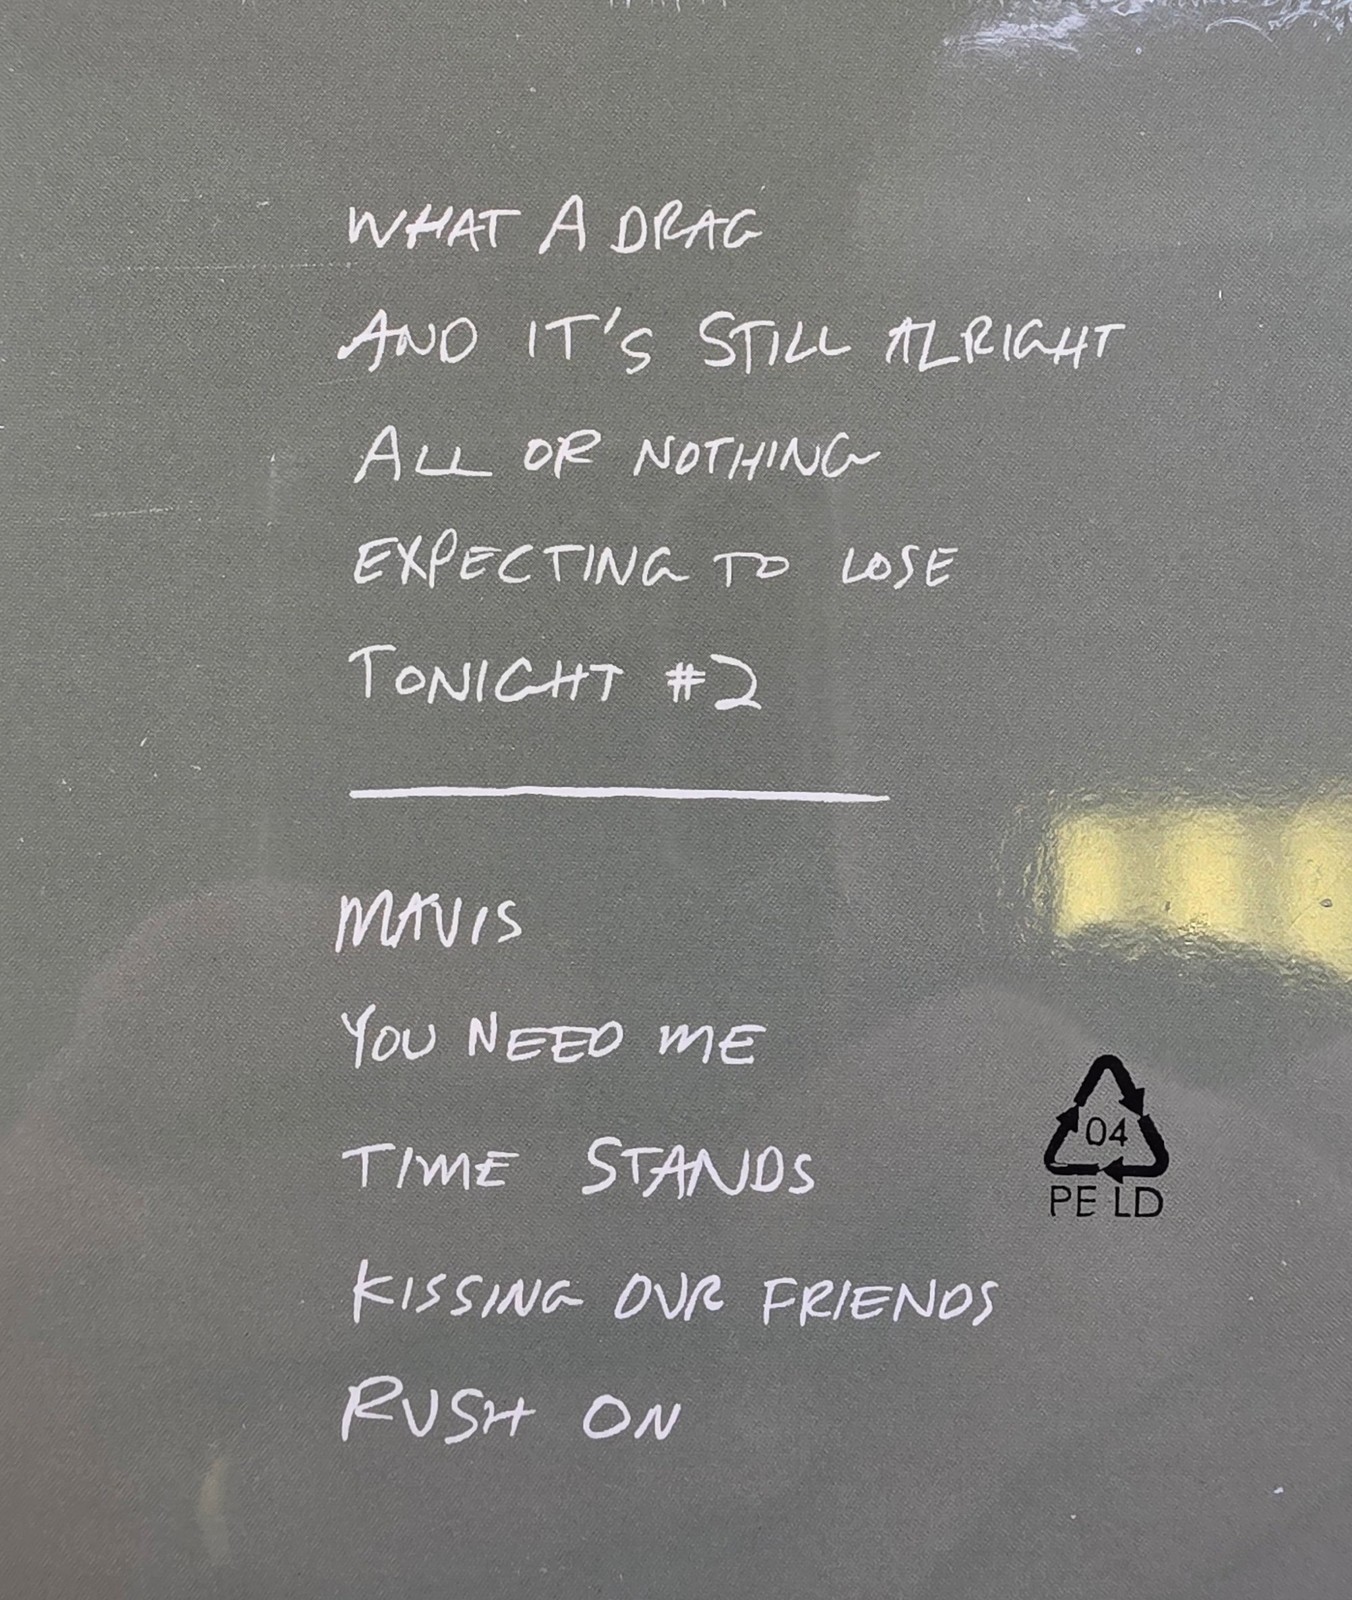 WHAT A DRAG
AND IT'S STILL ALRIGHT
ALL OR NOTHING
EXPECTING TO LOSE
TONIGHT #2
MAVIS
YOU NEED ME
TIME STANDS
KISSING OUR FRIENDS
RUSH ON
04
PE LD